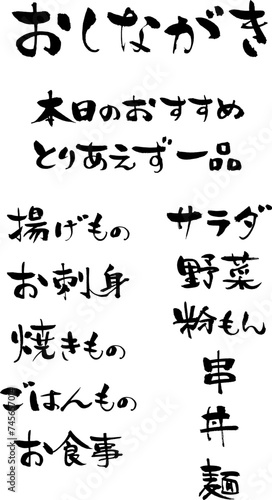 おしながき
本日のおすすめ
とりあえず一品
揚げもの
お刺身
焼きもの
ごはんもの
お食事
サラダ
野菜
粉もん
串
丼
麺